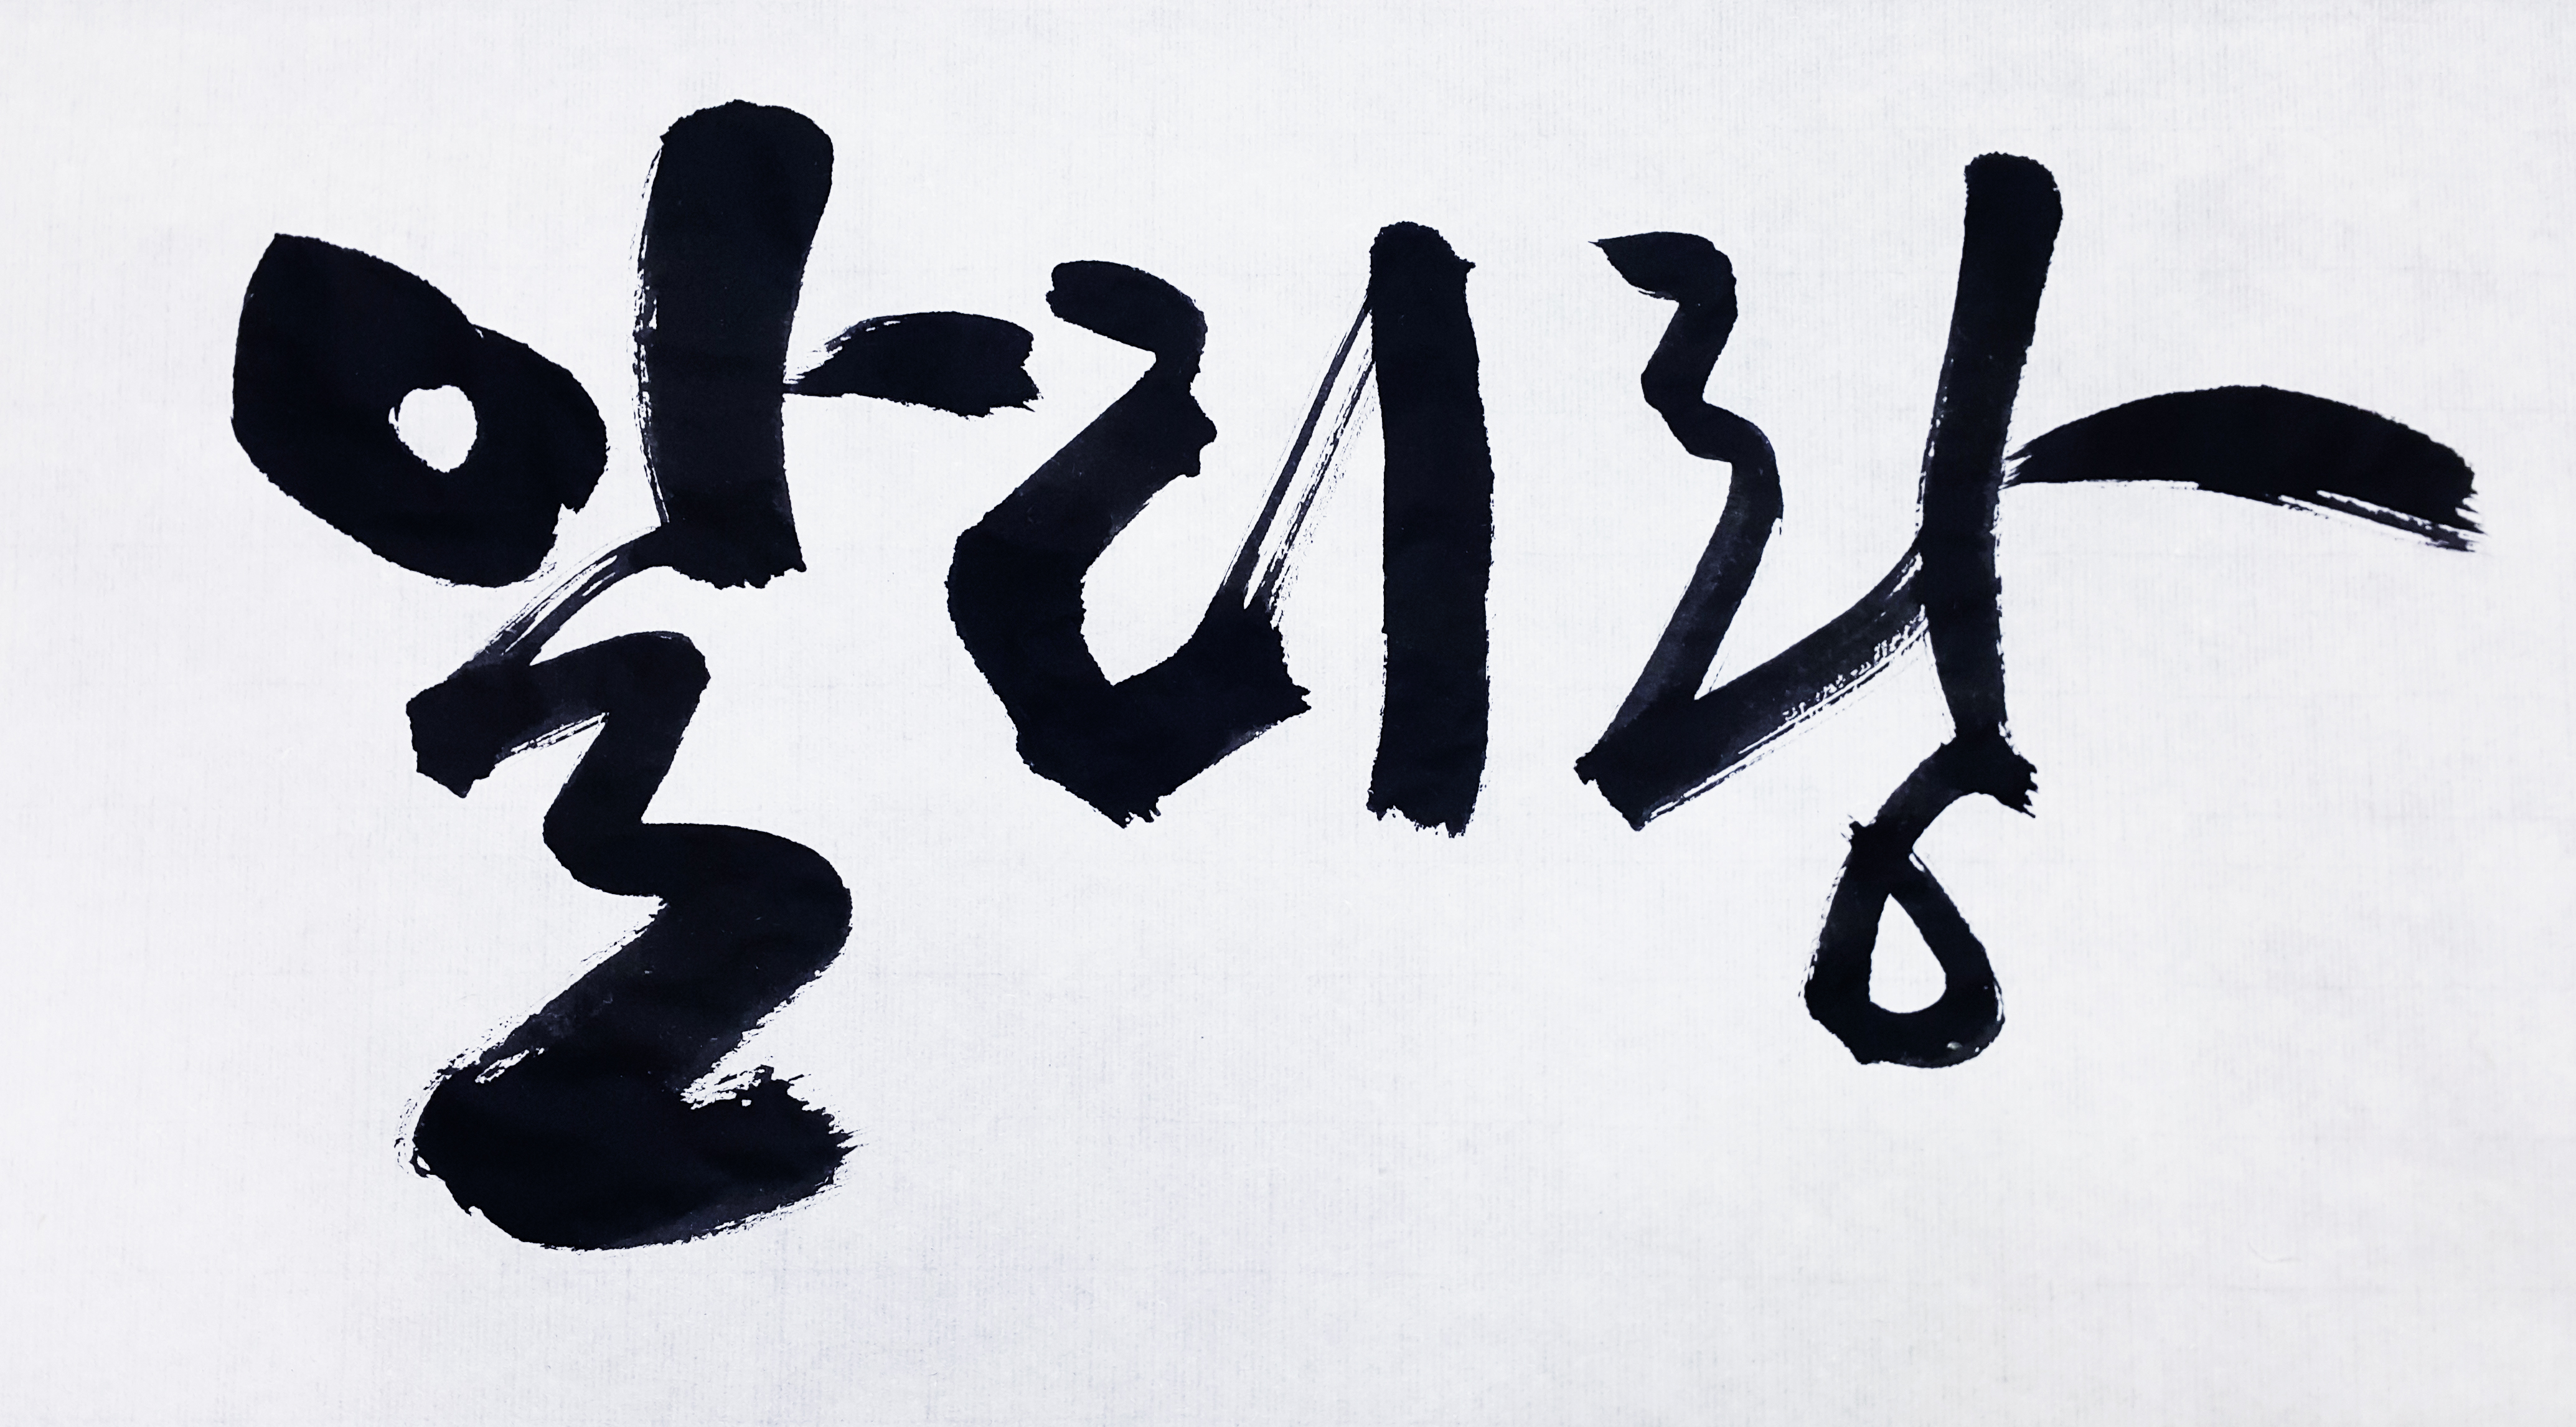 알리랑